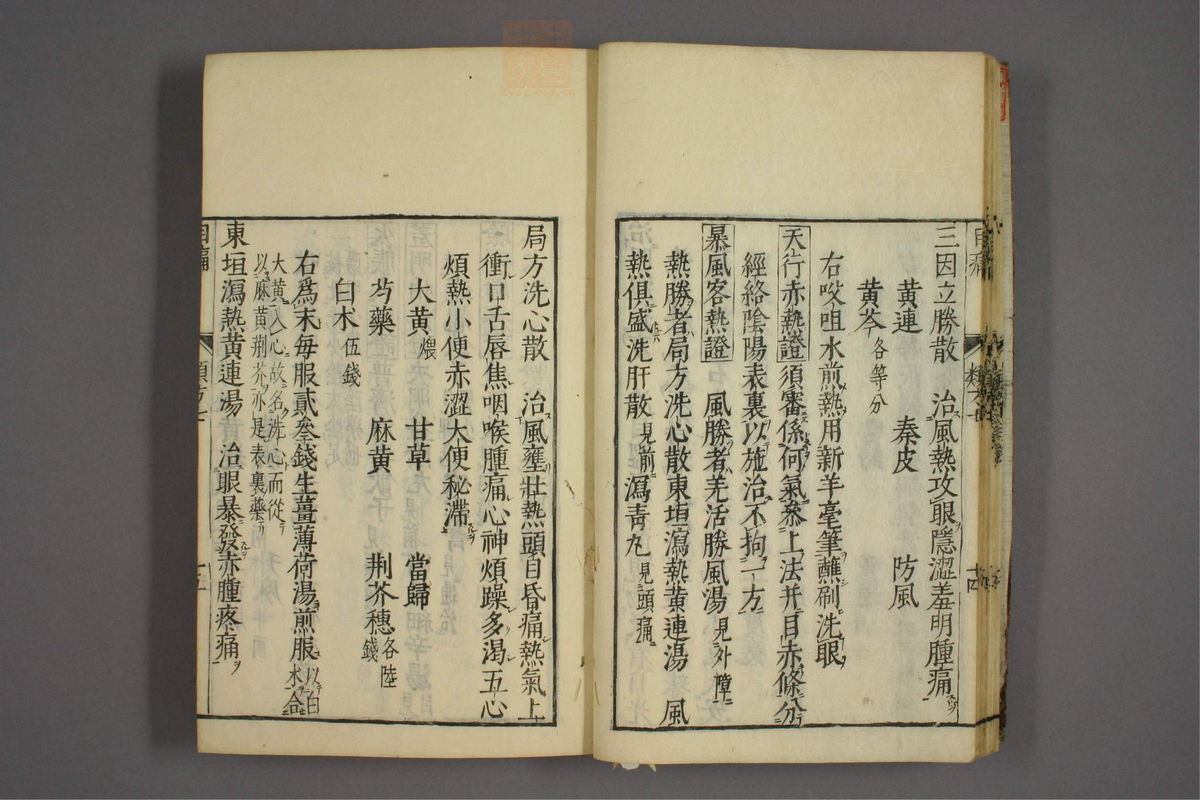 三因立勝散 治風熱攻眼隱澀羞明腫痛
黃連 秦皮 防風
黃芩各等分
右㕮咀水煎熱用新羊毫筆蘸刷洗眼
天行赤熱證 須審係何氣叅上法并目赤條分
經絡陰陽表裏以施治不拘一方
暴風客熱證 風勝者羌活勝風湯見外障
熱勝者局方洗心散東垣瀉熱黃連湯 風
熱俱盛洗肝散見前瀉青丸見頭痛
局方洗心散 治風壅壯熱頭目昏痛熱氣上
衝口舌唇焦咽喉腫痛心神煩躁多渴五心
煩熱小便赤澀大便秘滯
大黃煨 甘草 當歸
芍藥 麻黃 荆芥穗各陸錢
白术伍錢
右爲末每服貳叁錢生薑薄荷湯煎服以白术合
大黃入心故名洗心而從
以麻黃荆芥亦是表裏藥
東垣瀉熱黃連湯 治眼暴發赤腫疼痛
目痛
類方七